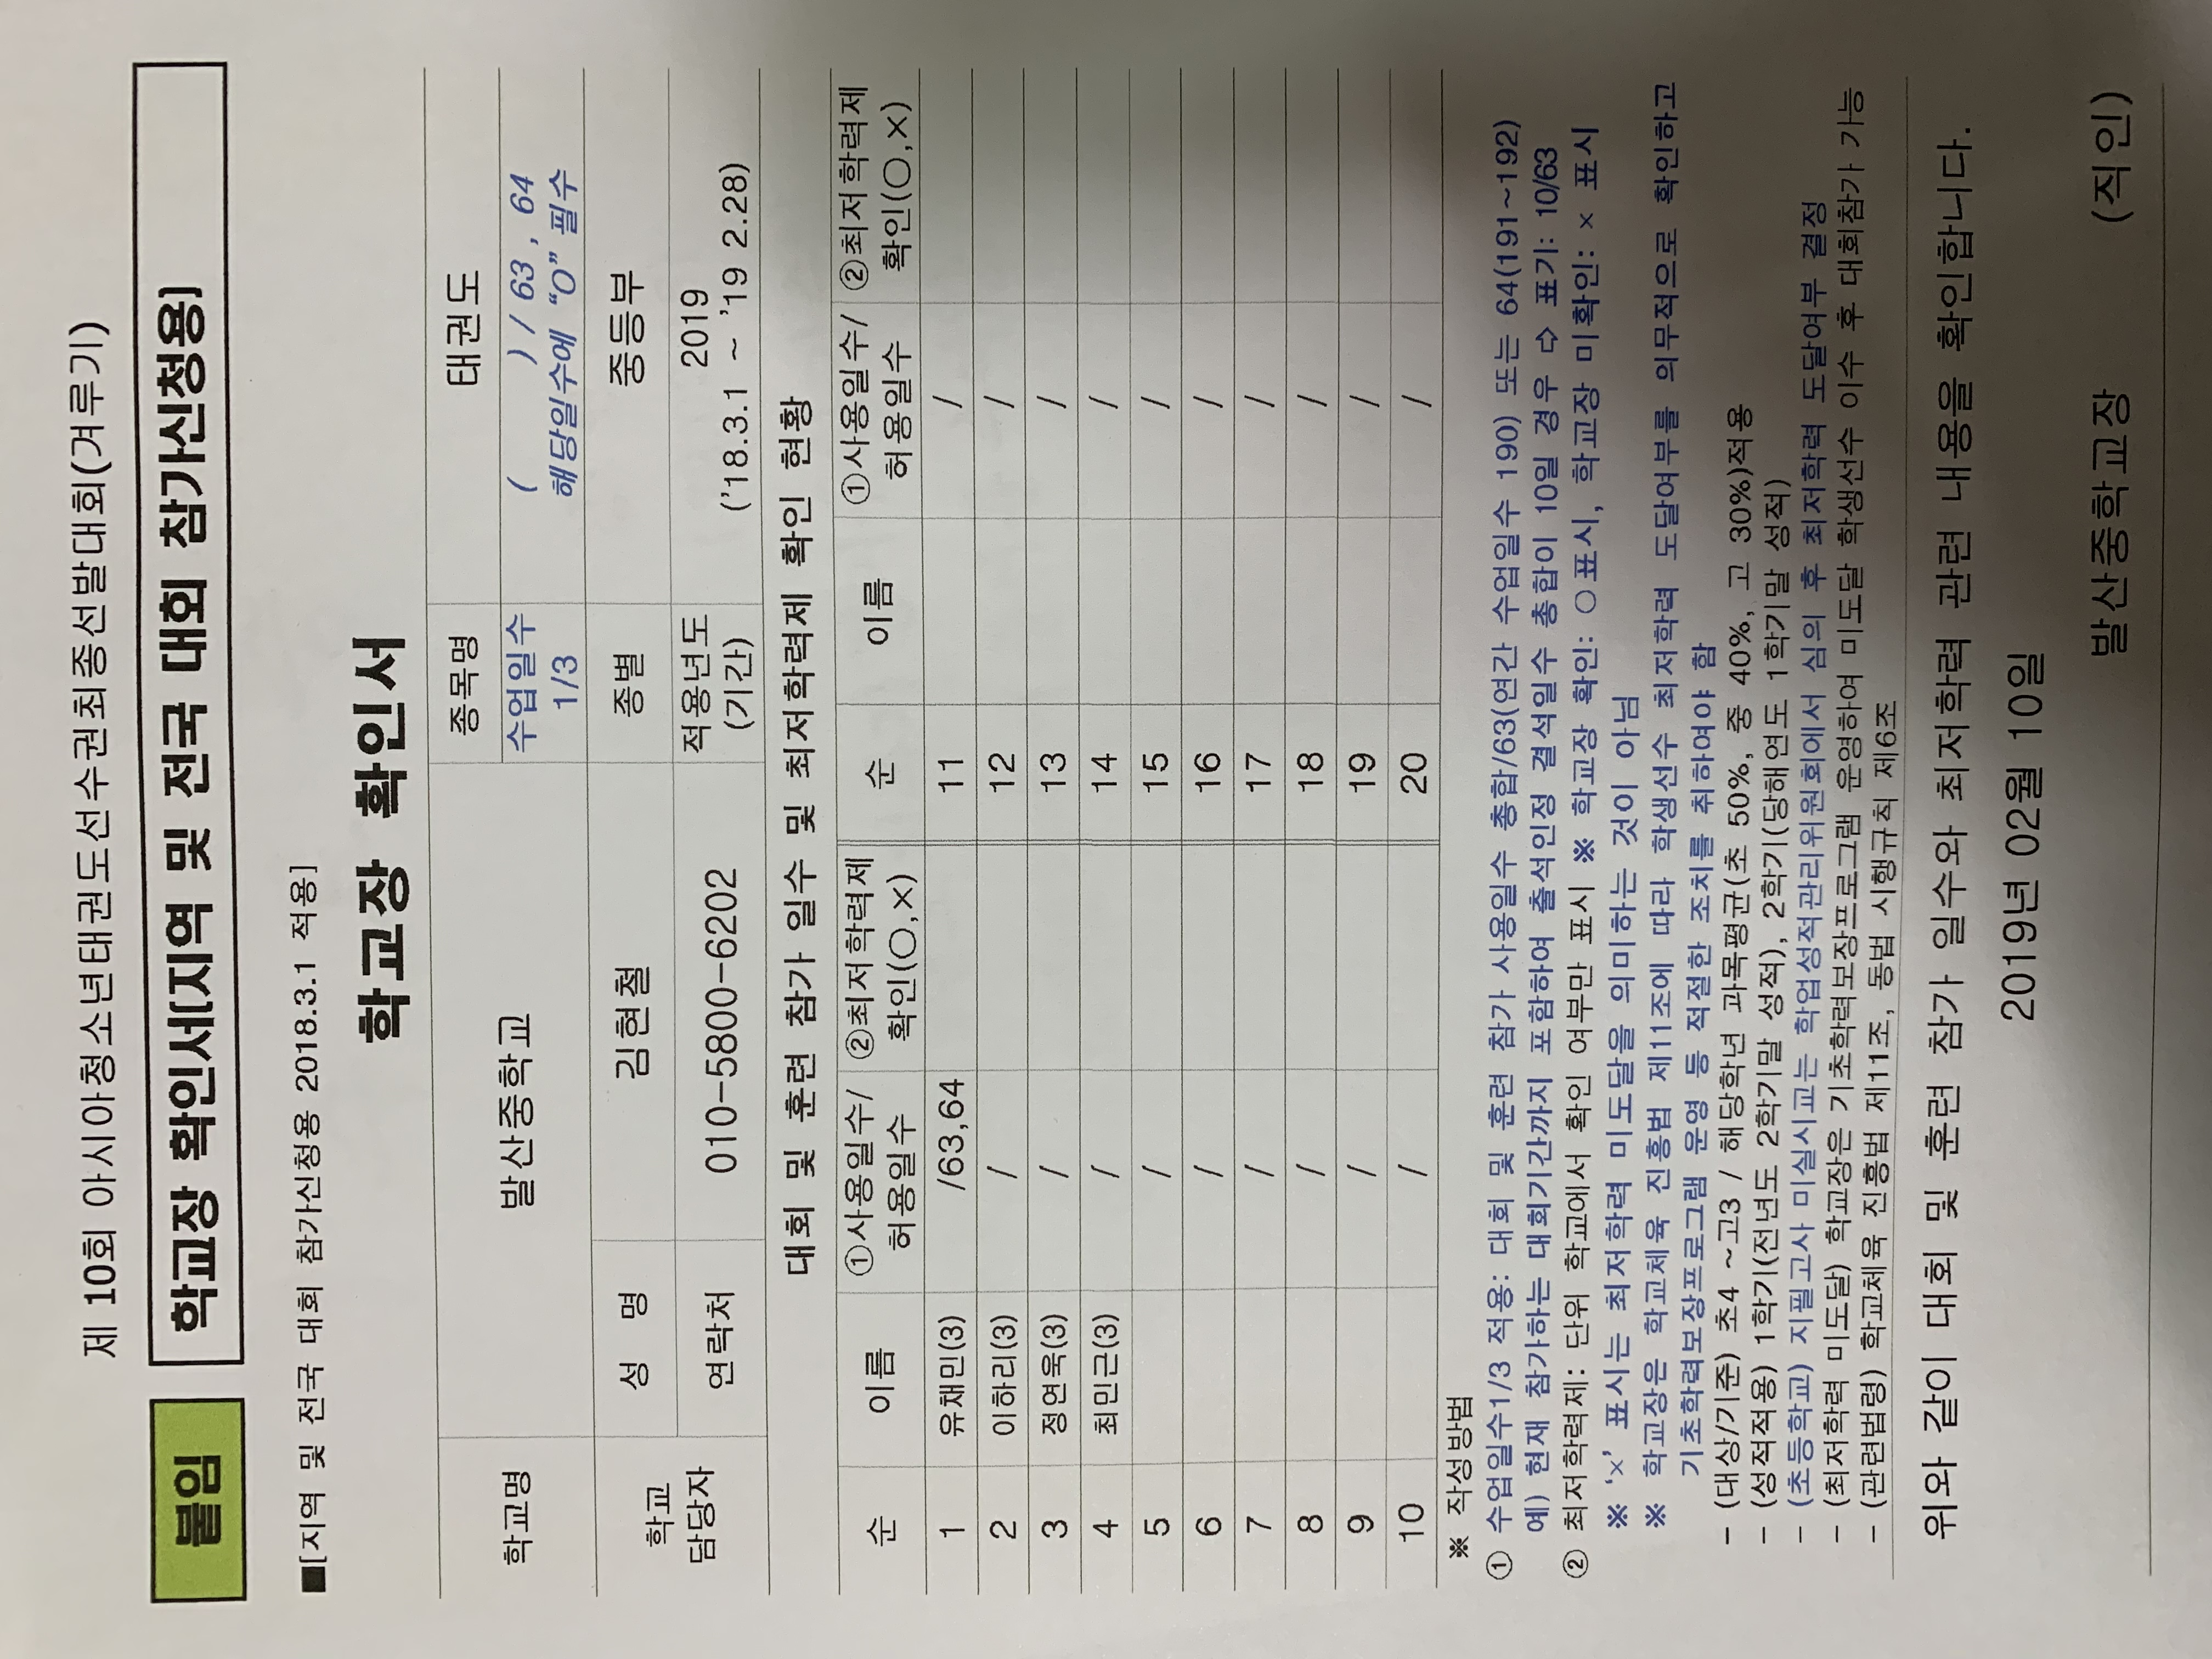 제 10회 아시아청소년태권도선수권최종선발대회(겨루기)
붙임 학교장 확인서(지역 및 전국 대회 참가신청용)
■[지역 및 전국 대회 참가신청용 2018.3.1 적용]
학교장 확인서
학교명 발산중학교 종목명 태권도
수업일수 1/3 ( ) / 63 , 64
해당일수에 “O” 필수
학교 담당자 성 명 김현철 종별 중등부
연락처 010-5800-6202 적용년도 (기간) 2019
('18.3.1 ~ '19 2.28)
대회 및 훈련 참가 일수 및 최저학력제 확인 현황
순 이름 ①사용일수/허용일수 ②최저학력제 확인(○,×) 순 이름 ①사용일수/허용일수 ②최저학력제 확인(○,×)
1 유채민(3) /63,64 11 /
2 이하리(3) / 12 /
3 정연욱(3) / 13 /
4 최민근(3) / 14 /
5 / 15 /
6 / 16 /
7 / 17 /
8 / 18 /
9 / 19 /
10 / 20 /
※ 작성방법
① 수업일수1/3 적용: 대회 및 훈련 참가 사용일수 총합/63(연간 수업일수 190) 또는 64(191~192)
예) 현재 참가하는 대회기간까지 포함하여 출석인정 결석일수 총합이 10일 경우 ⇨ 표기: 10/63
② 최저학력제: 단위 학교에서 확인 여부만 표시 ※ 학교장 확인: ○표시, 학교장 미확인: × 표시
※ ‘×’ 표시는 최저학력 미도달을 의미하는 것이 아님
※ 학교장은 학교체육 진흥법 제11조에 따라 학생선수 최저학력 도달여부를 의무적으로 확인하고
기초학력보장프로그램 운영 등 적절한 조치를 취하여야 함
- (대상/기준) 초4 ~고3 / 해당학년 과목평균(초 50%, 중 40%, 고 30%)적용
- (성적적용) 1학기(전년도 2학기말 성적), 2학기(당해연도 1학기말 성적)
- (초등학교) 지필고사 미실시교는 학업성적관리위원회에서 심의 후 최저학력 도달여부 결정
- (최저학력 미도달) 학교장은 기초학력보장프로그램 운영하여 미도달 학생선수 이수 후 대회참가 가능
- (관련법령) 학교체육 진흥법 제11조, 동법 시행규칙 제6조
위와 같이 대회 및 훈련 참가 일수와 최저학력 관련 내용을 확인합니다.
2019년 02월 10일
발산중학교장 (직인)